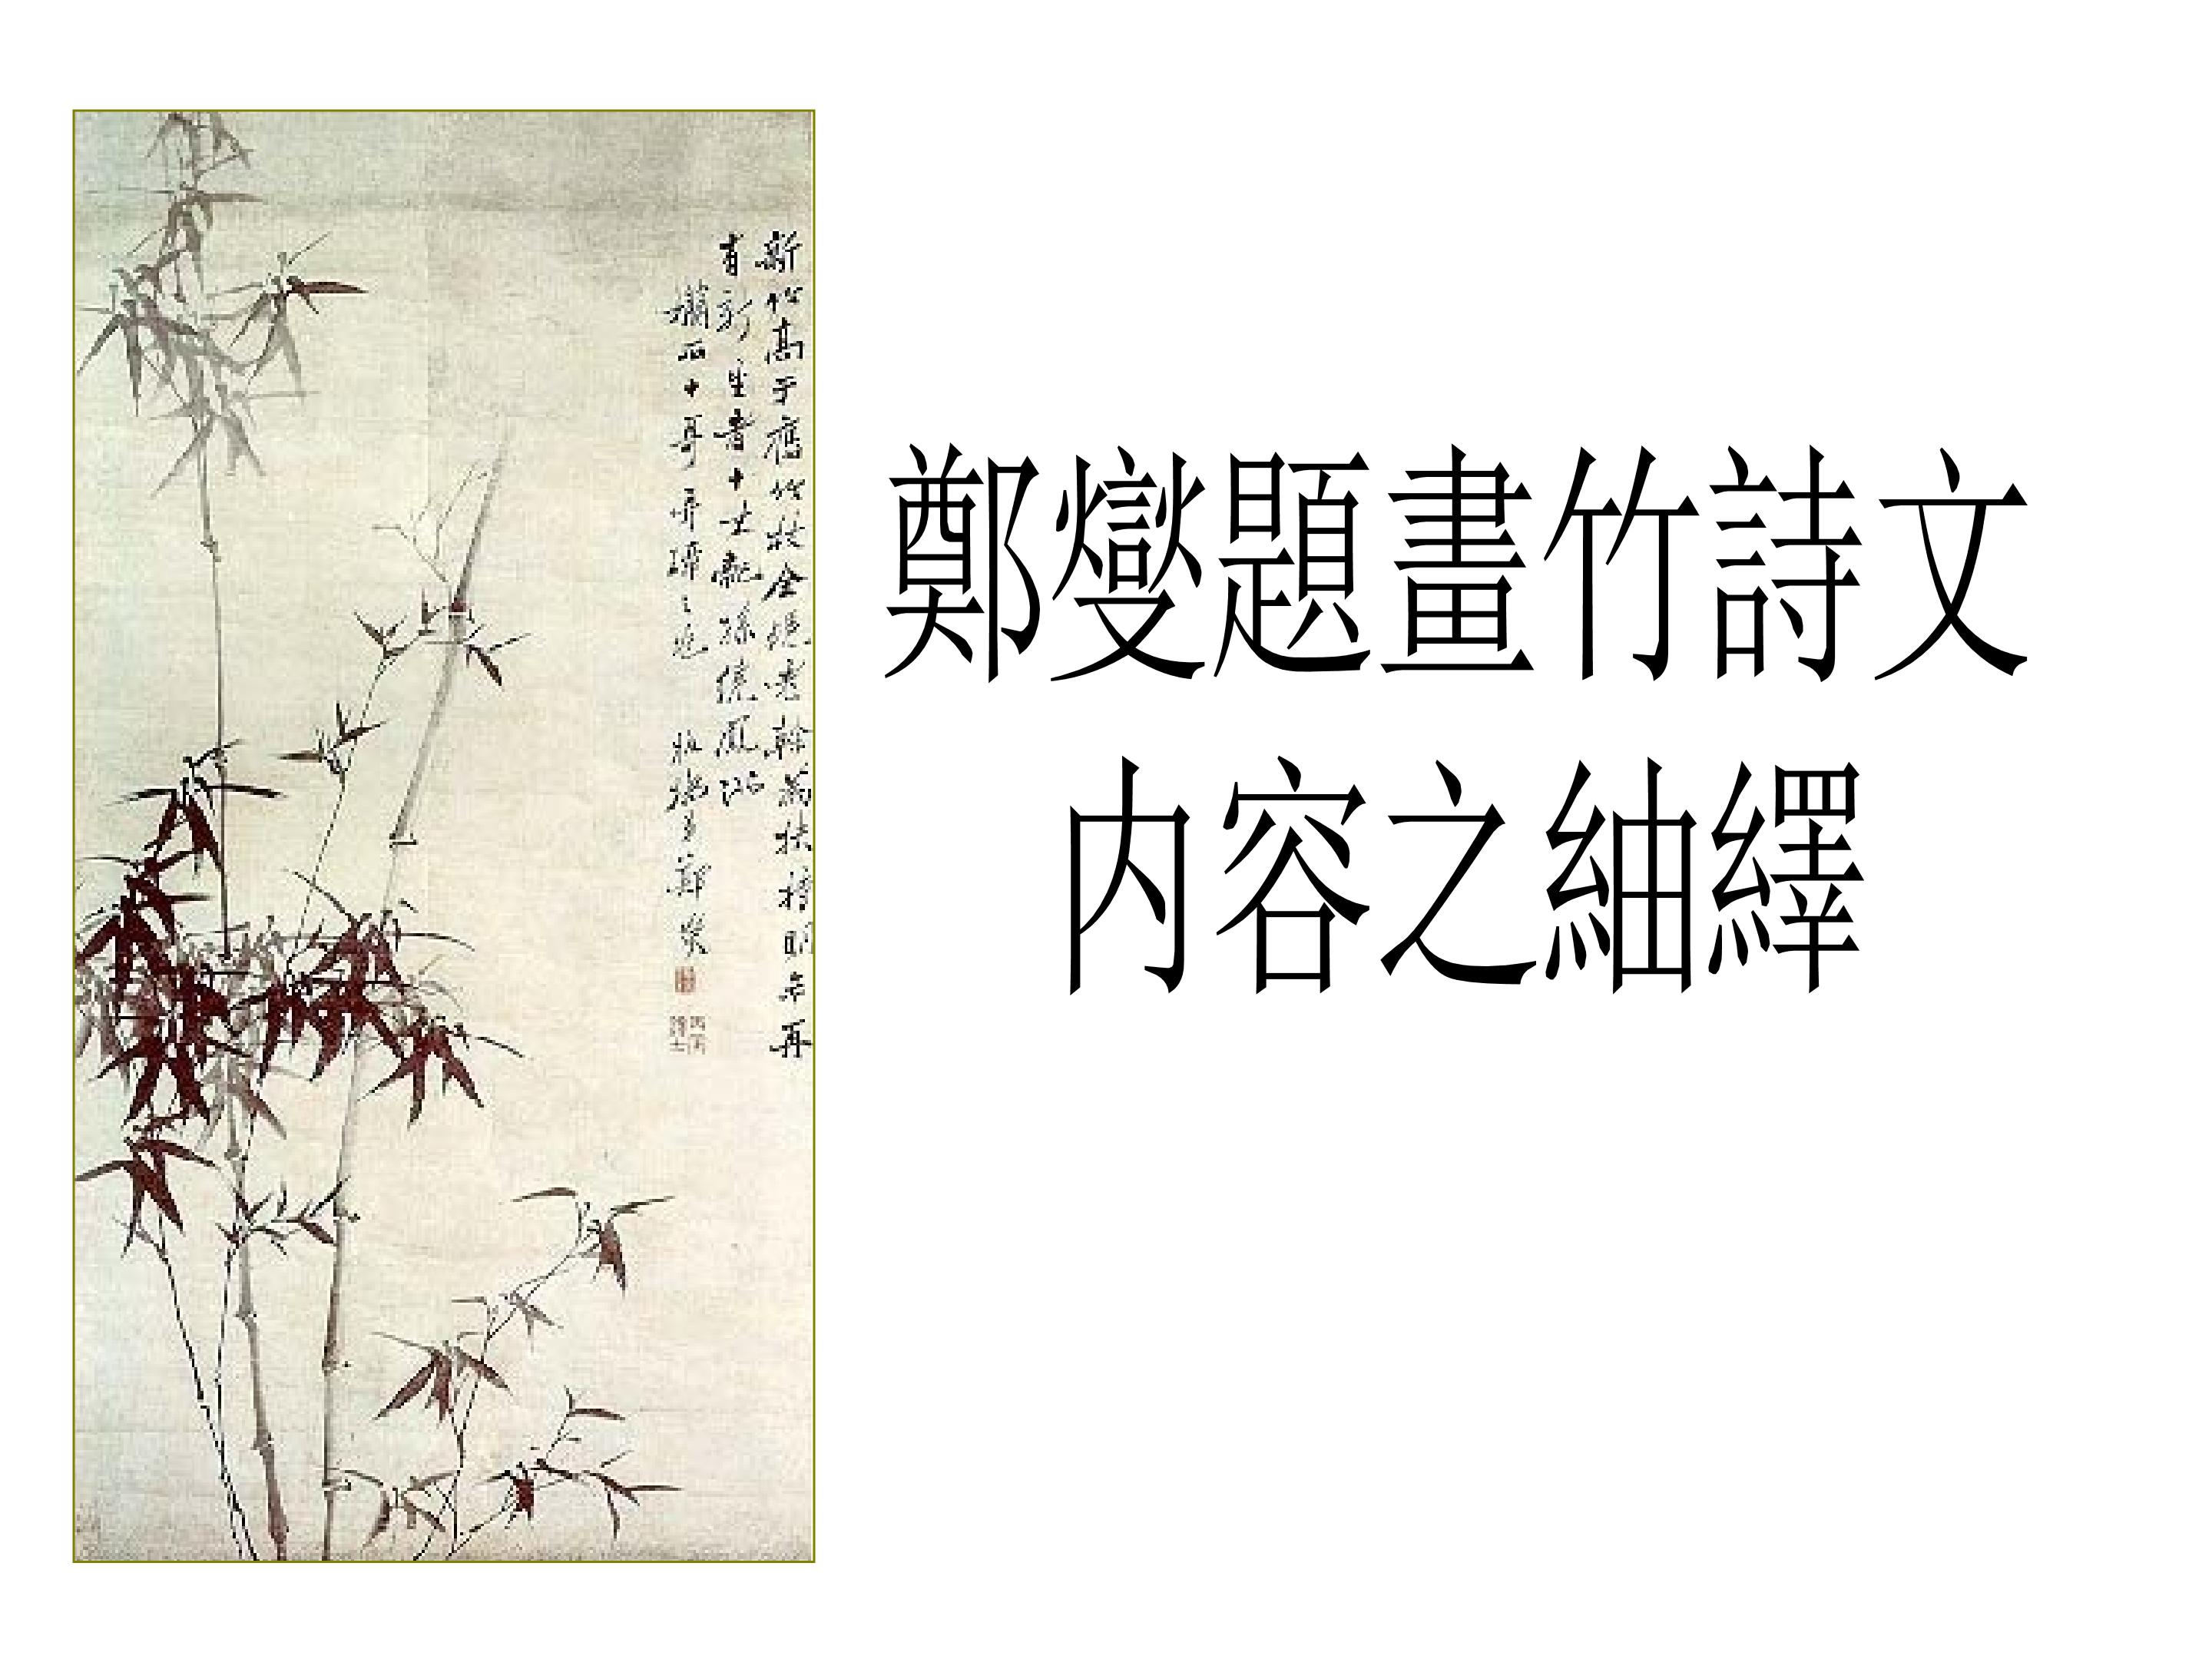 鄭燮題畫竹詩文
内容之紬繹
新竹高于舊竹枝全憑老幹為扶持明年再
有新生者十丈龍孫繞鳳池
石十哥弄璋之 板橋弟鄭燮